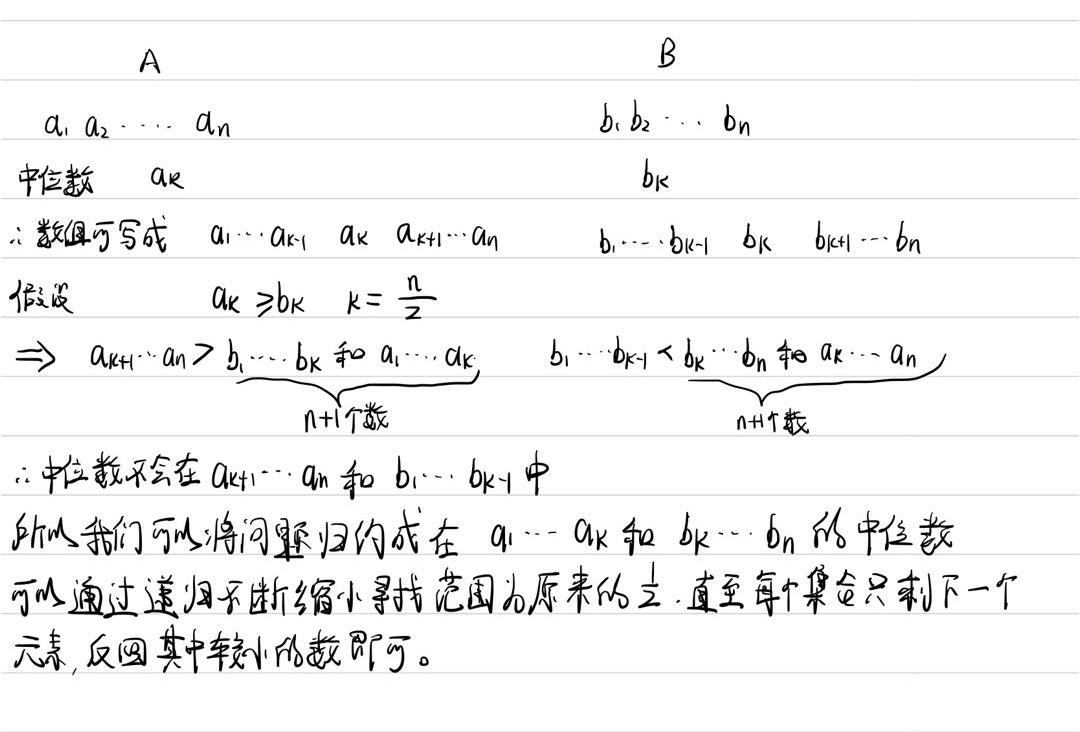 A B
a₁ a₂ ····· aₙ b₁ b₂ ··· bₙ
中位数 aₖ bₖ
∴ 数组可写成 a₁···aₖ₋₁ aₖ aₖ₊₁···aₙ b₁····bₖ₋₁ bₖ bₖ₊₁···bₙ
假设 aₖ ≥ bₖ k = n/2
⇒ aₖ₊₁···aₙ > b₁····bₖ 和 a₁····aₖ b₁···bₖ₋₁ < bₖ···bₙ 和 aₖ···aₙ
n+1个数 n+1个数
∴ 中位数不会在 aₖ₊₁···aₙ 和 b₁···bₖ₋₁ 中
所以我们可以将问题归约成在 a₁···aₖ 和 bₖ···bₙ 的中位数
可以通过递归不断缩小寻找范围为原来的1/2.直至每个集合只剩下一个
元素,反回其中较小的数即可。